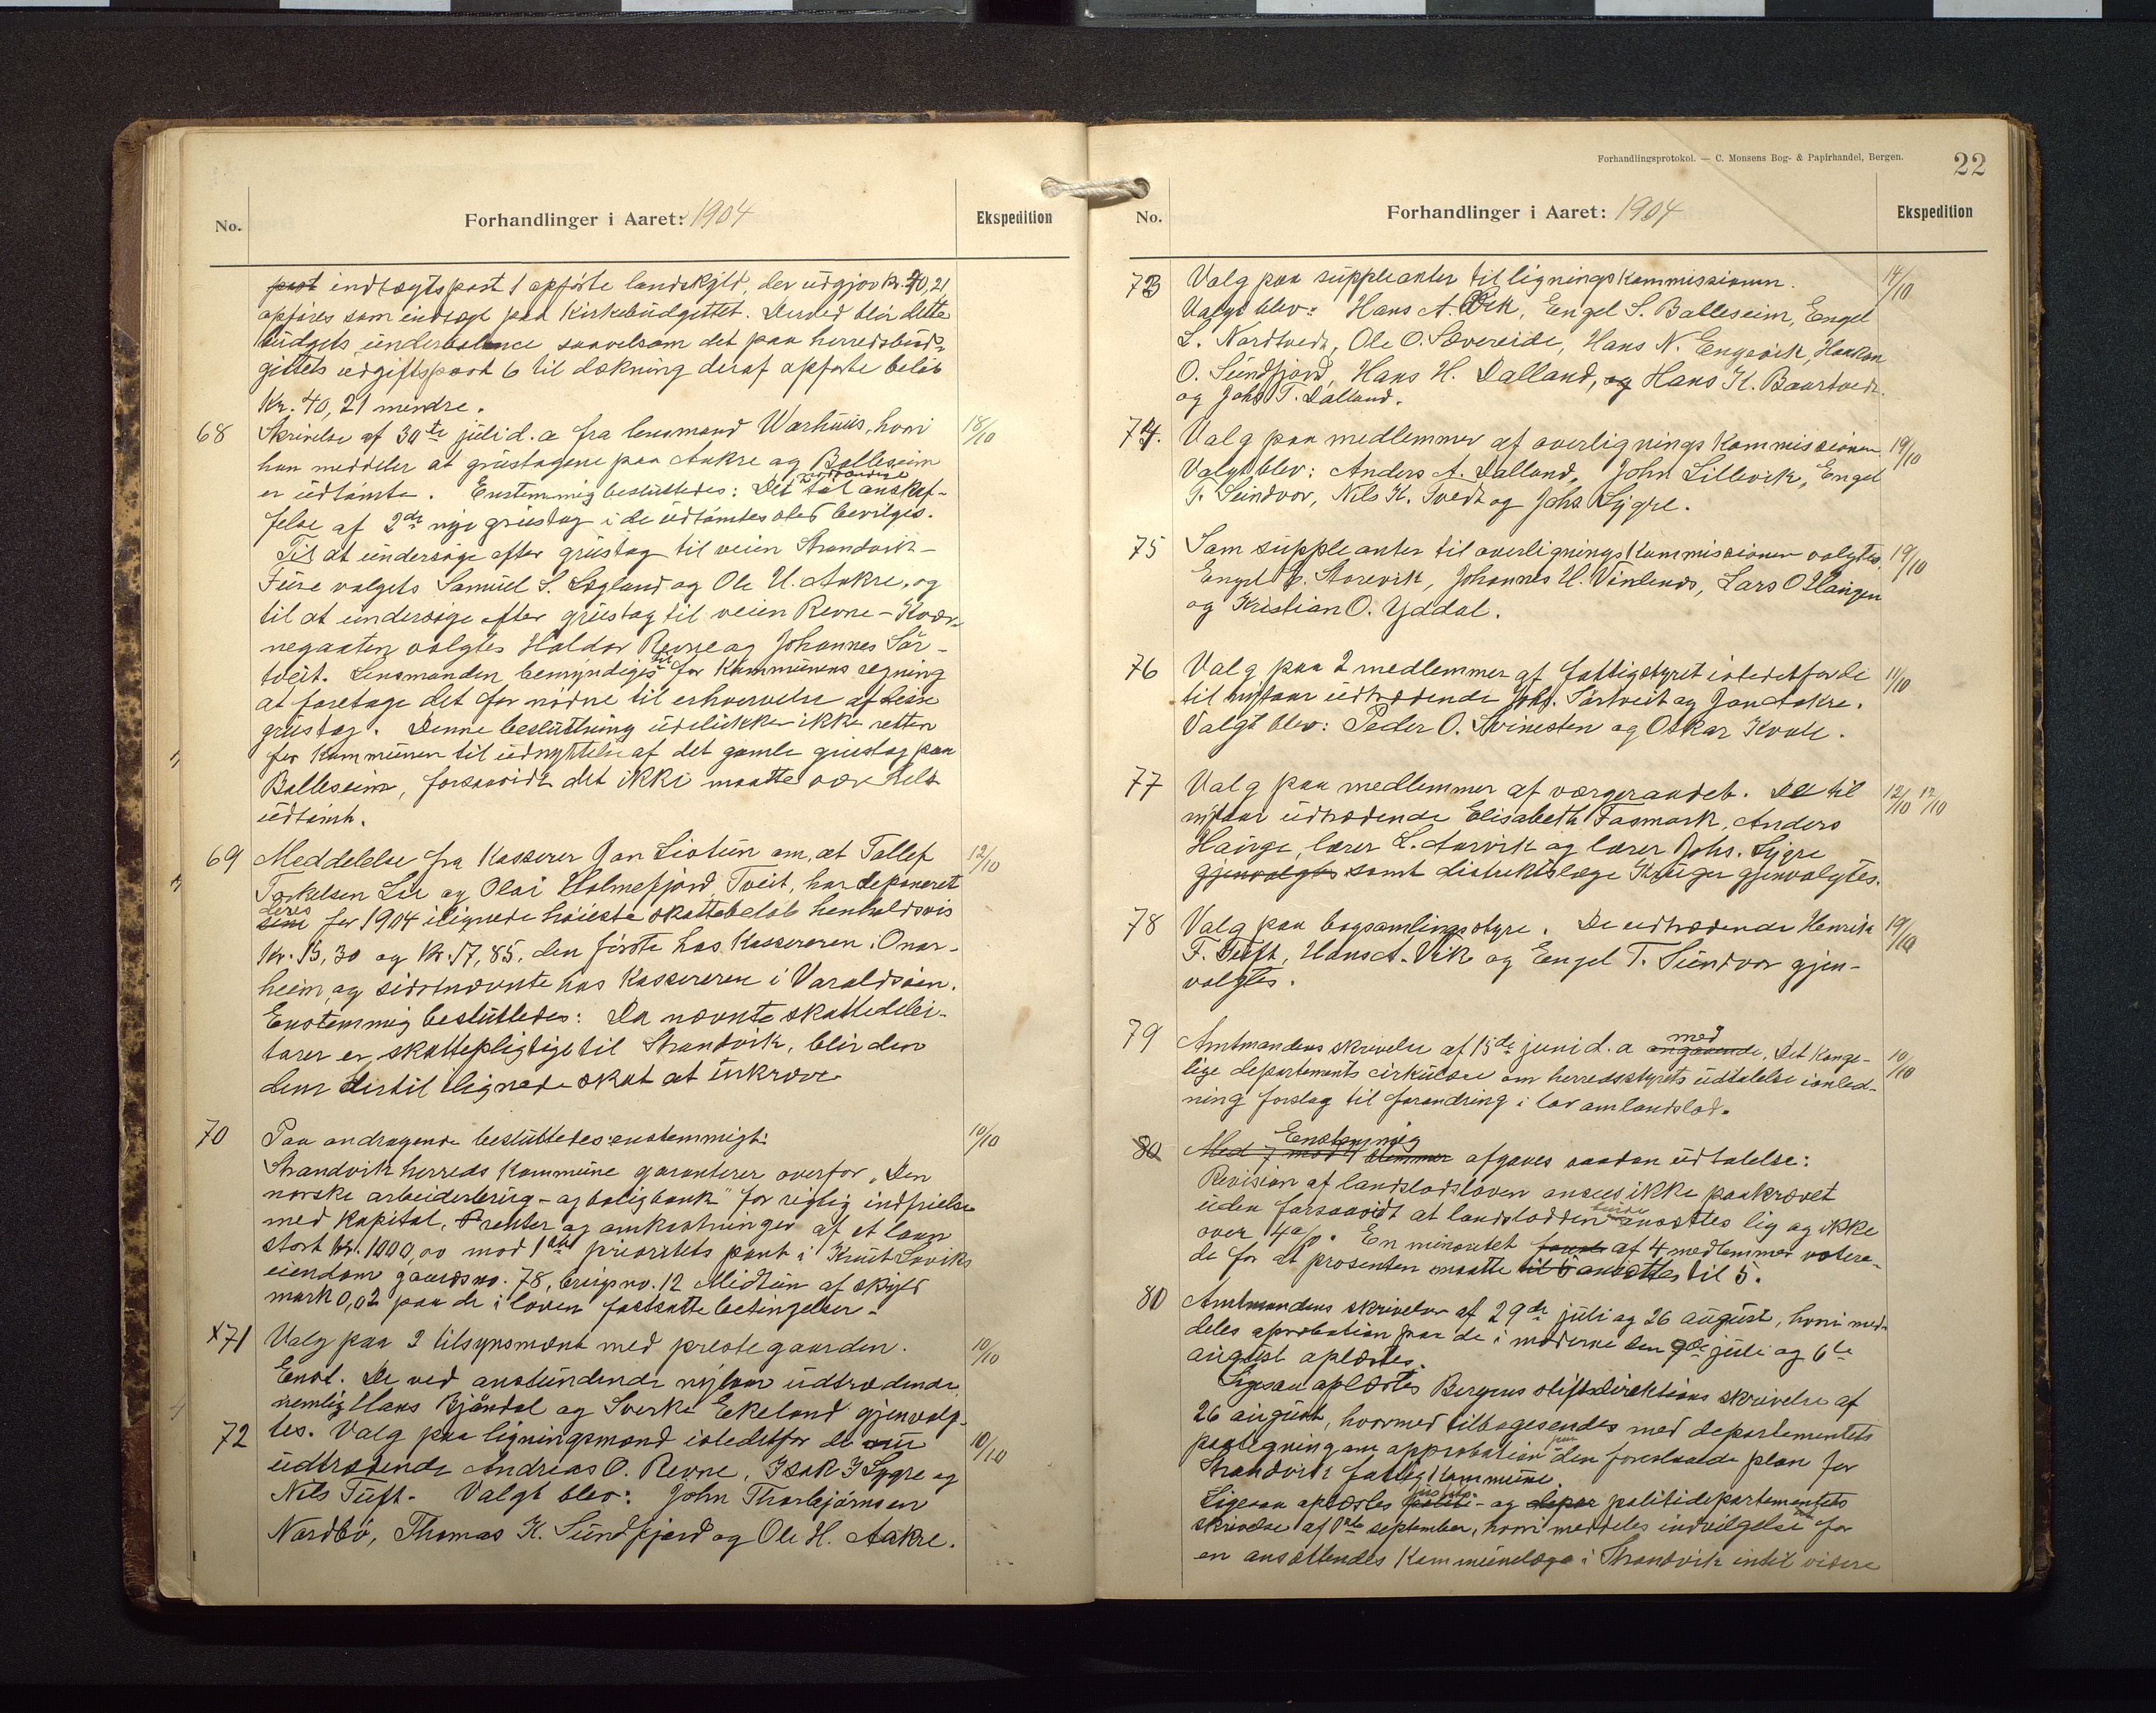 No.
Forhandlinger i Aaret: 1904
Ekspedition
post indtægtspost 1 opførte landskyld, der udgjør kr. 40,21
opføres som indtægt paa kirkebudgettet. Derved blir dette
budgets underbalance saavelsom det paa herredsbud-
gettets udgiftspost 6 til dækning deraf opførte beløb
Kr. 40,21 mindre.
68 Skrivelse af 30te juli d. a fra lensmand Warhuus, hvori 18/10
han meddeler at grustagene paa Aakre og Balleseim
er udtømte. Enstemmig besluttedes: Det nødvendige til anskaf-
felse af 2de nye grustag i de udtømtes sted bevilges.
Til at undersøge efter grustag til veien Strandvik-
Fuse valgtes Samuel S. Lægland og Ole U. Aakre, og
til at undersøge efter grustag til veien Revne - Kvær-
negaaten valgtes Haldor Revne og Johannes Sør-
tveit. Lensmanden bemyndiges til for kommunens regning
at foretage det for nødne til erhvervelse af disse
grustag. Denne beslutning udelukker ikke retten
for kommunen til udnyttelse af det gamle grustag paa
Balleseim, forsaavidt det ikke maatte være helt
udtømt.
69 Meddelelse fra kasserer Jan Liotun om, at Tollef 12/10
Torkelsen Lie og Olai Holmefjord, Tveit, har deponeret
sine deres for 1904 ilignede høieste skattebeløb henholdsvis
kr. 15,30 og kr. 17,85, den første hos kassereren i Onar-
heim og sidstnævnte hos kassereren i Varaldsøen.
Enstemmig besluttedes: Da nævnte skattedebi-
torer er skattepligtige til Strandvik, blir den
dem dertil lignede skat at inkræve
70 Paa andragende besluttedes enstemmigt: 10/10
Strandvik herreds kommune garanterer overfor „Den
norske arbeiderbrug- og boligbank" for rigtig indfrielse
med kapital, renter og omkostninger af et laan
stort kr. 1000,00 mod 1ste prioritets pant i Knut Løviks
eiendom gaardsno. 78, brugsno. 12 Midtun af skyld
mark 0,02 paa de i loven fastsatte betingelser -
x71 Valg paa 2 tilsynsmænt med prestegaarden. 10/10
Enst. De ved anstundende nytaar udtrædende,
nemlig Hans Bjøndal og Sverke Ekeland gjenvalg-
72 tes. Valg paa ligningsmænd istedetfor de nu 10/10
udtrædende Andreas O. Revne, Isak I Lygre og
Nils Tuft. Valgt blev: John Thorbjørnsen
Nordbø, Thomas K. Sundfjord og Ole H. Aakre.
Forhandlingsprotokol. — C. Monsens Bog- & Papirhandel, Bergen.
22
No.
Forhandlinger i Aaret: 1904
Ekspedition
73 Valg paa suppleanter til ligningskommissionen. 14/10
Valgt blev: Hans A. Vik, Engel S. Balleseim, Engel
L. Nordtvedt, Ole O. Sævereide, Hans N. Engevik, Haakon
O. Sundfjord, Hans H. Dalland, og Hans K. Baartvedt
og Johs T. Dalland.
74. Valg paa medlemmer af overligningskommissionen 19/10
Valgt blev: Anders A. Dalland, John Lillevik, Engel
T. Sundvor, Nils K. Tvedt og Johs. Lygre.
75 Som suppleanter til overligningskommissionen valgtes 19/10
Engel E. Storevik, Johannes H. Vinlends, Lars O Haugen
og Kristian O. Yddal.
76 Valg paa 2 medlemmer af fattigstyret istedetfor de 11/10
til nytaar udtrædende Johs. Sørtveit og Jon Aakre.
Valgt blev: Peder O. Svinesten og Oskar Kvale.
77 Valg paa medlemmer af vergeraadet. De til 12/10 12/10
nytaar udtrædende Elisabeth Fasmark, Anders
Hauge, lærer L. Aarvik og lærer Johs. Lygre
gjenvalgtes samt distriktslæge Krüger gjenvalgtes.
78 Valg paa bogsamlingsstyre. De udtrædende Henrik 19/10
F. Tuft, Hans A. Vik og Engel T. Sundvor gjen-
valgtes.
79 Amtmandens skrivelse af 15de juni d. a angaaende med Det konge- 10/10
lige departements cirkulære om herredsstyrets udtalelse i anled-
ning forslag til forandring i lov om landslod.
80 Med 7 mod 4 stemmer Enstemmig afgaves saadan udtalelse:
Revision af landslodsloven ansees ikke paakrævet
uden forsaavidt at landslodden burde ansættes lig og ikke
over 4 o/o. En minoritet af 4 medlemmer votere-
de for at prosenten maatte til 5 ansættes til 5.
80 Amtmandens skrivelser af 29de juli og 26 august, hvori med-
deles aprobation paa de i møderne den 9de juli og 6te
august oplæstes.
Ligesaa oplæstes Bergens stiftsdirektions skrivelse af
26 august, hvormed tilbagesendes med departementets
paategning om approbation paa den foreslaaede plan for
Strandvik fattigkommune.
Ligesaa oplæstes politi- justits- og depar politidepartementets
skrivelse af 1ste september, hvori meddeles indvilgelse for
en ansættendes kommunelæge i Strandvik indtil videre